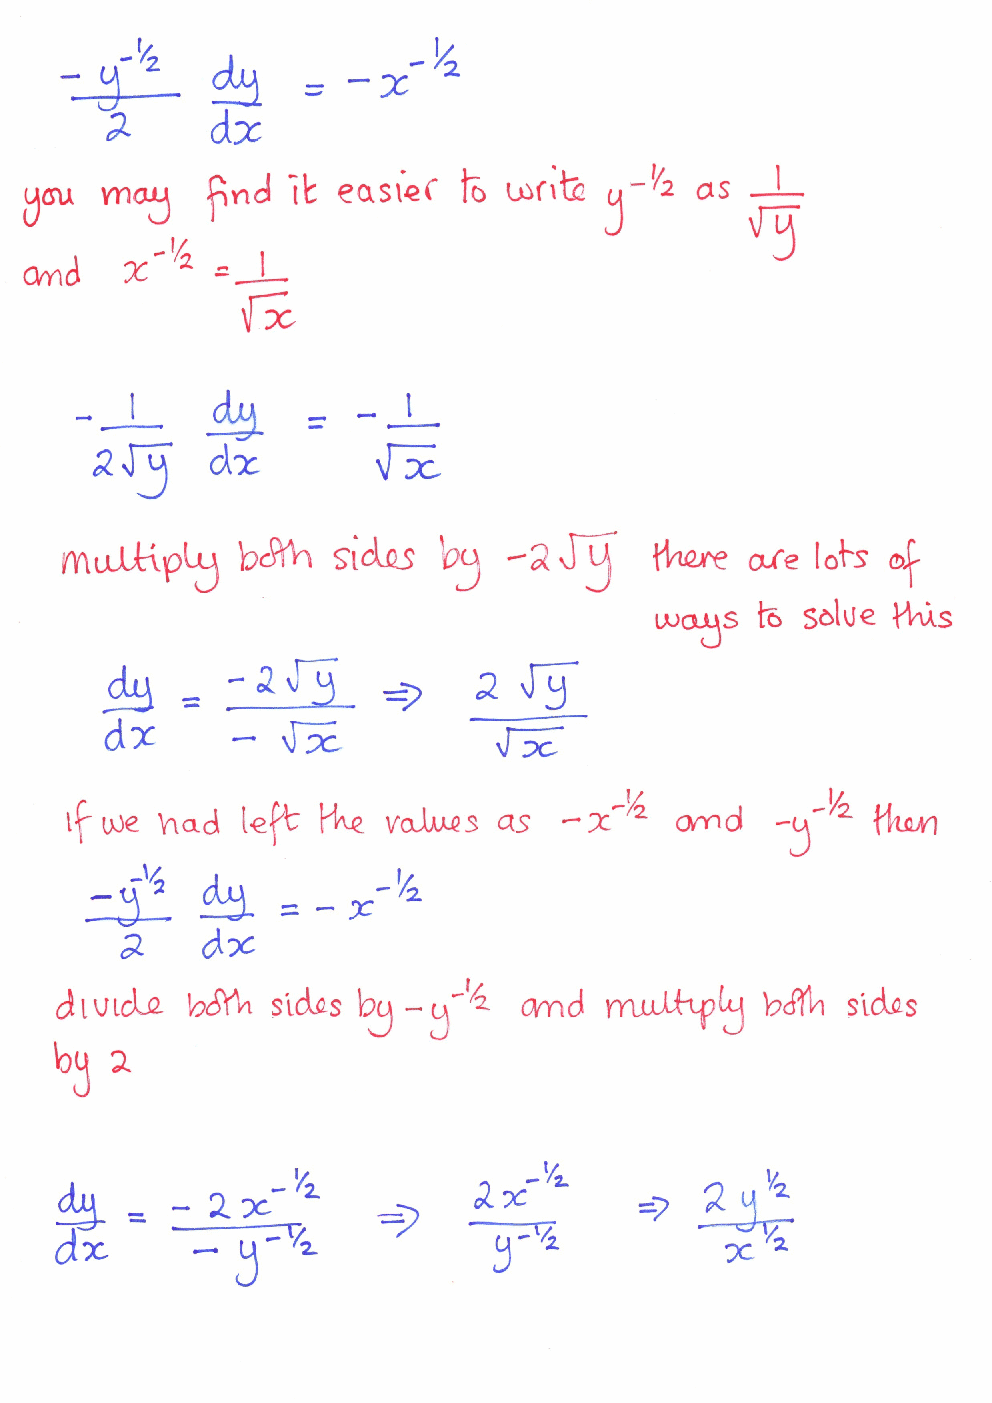 -y^-1/2 / 2 dy/dx = -x^-1/2
you may find it easier to write y^-1/2 as 1/√y
and x^-1/2 = 1/√x
- 1/2√y dy/dx = - 1/√x
multiply both sides by -2√y there are lots of
ways to solve this
dy/dx = -2√y / -√x ⇒ 2√y / √x
If we had left the values as -x^-1/2 and -y^-1/2 then
-y^-1/2 / 2 dy/dx = -x^-1/2
divide both sides by -y^-1/2 and multiply both sides
by 2
dy/dx = -2x^-1/2 / -y^-1/2 ⇒ 2x^-1/2 / y^-1/2 ⇒ 2y^1/2 / x^1/2